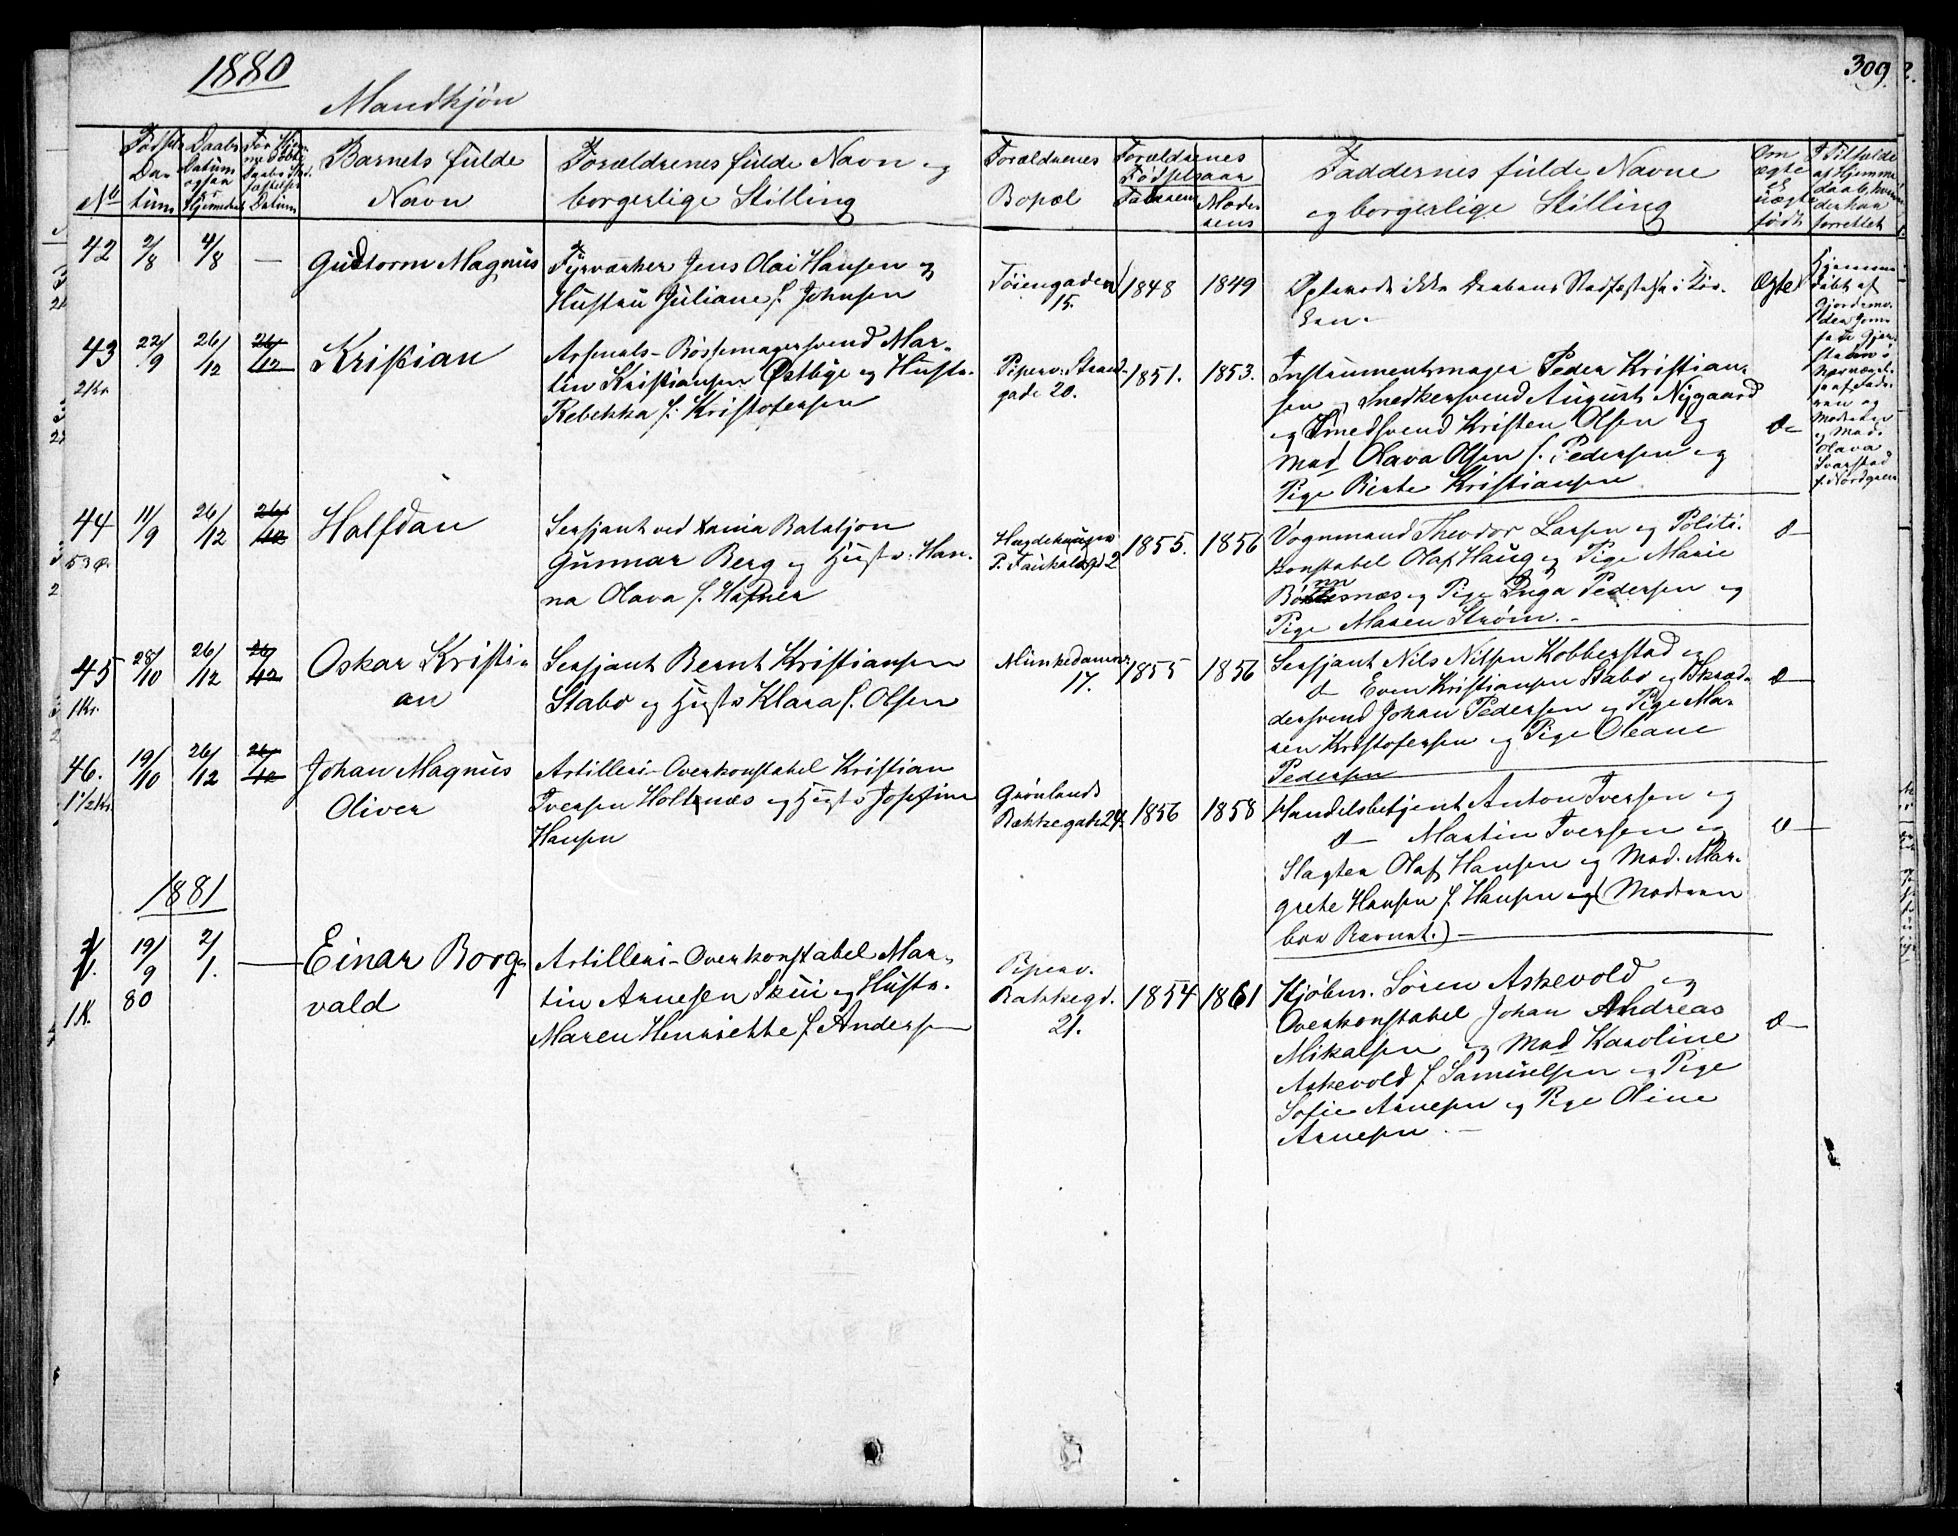 1880
309.
Mandkjøn
No
Fødsels Datum
Daabs Datum ogsaa Hjemmedaab
Barnets fulde
Navn
Forældrenes fulde Navn og
borgerlige Stilling
Forældrenes
Bopæl
Forældrenes
Fødselsaar
Faderens
Moderens
Faddernes fulde Navne
og borgerlige Stilling
Om ægte el uægte født
I Tilfælde af Hjemmedaab, hvem der har forrettet
42 2/8 4/8 —
Gudtorm Magnus
Fyrværker Jens Olai Hansen og
Hustru Juliane f. Johnsen
Tøiengaden
15.
1848 1849
Oplevede ikke Daabens Stadfæstelse i Kir-
ken.
Ægte
Hjemme
døbt af
Gjordemo-
43 22/9 26/12 26/12
2 Kr.
Kristian
Arsenals-Bøssemagersvend Mar-
tin Kristiansen Østbye og Hustr.
Rebekka f. Kristofersen
Piperv. Strand-
gade 20.
1851. 1853.
Instrumentmager Peder Kristian-
sen og Snedkersvend August Nygaard
og Smedsvend Kristen Olsen og
Mad Olava Olsen f. Pedersen og
Pige Berte Kristiansen
d—
og Mad.
Olava
Svarstad
f. Nordgaen
44 11/9 26/12 26/12
53 Ø.
Halfdan
Sersjant ved Linie Bataljon
Gunnar Berg og Hustr. Han-
na Olava f. Hafner
Hægdehaugen
1855. 1856
Vognmand Theodor Larsen og Politi-
konstabel Olaf Haug og Pige Marie
og Pige Inga Pedersen og
Pige Maren Strøm.—
d—
45 28/10 26/12 26/12
1 Kr.
Oskar Kristi-
an
Sersjant Bernt Kristiansen
Stabo og Hustr Klara f. Olsen
Munkedamsv.
17.
1855 1856
Sersjant Nils Nilsen Kobberstad og
d— Even Kristiansen Stabo og Skræd-
dersvend Johan Pedersen og Pige Ma-
ren Kristofersen og Pige Oleane
Pedersen
d—
46. 19/10 26/12 26/12
1 1/2 Kr.
Johan Magnus
Oliver
Artilleri-Overkonstabel Kristian
Iversen Holtnæs og Hustr Josefine
Hansen
Grønlands
Bækkegade 24.
1856 1858
Handelsbetjent Anton Iversen og
d— Martin Iversen og
Slagter Olaf Hansen og Mad. Mar-
grete Hansen f. Hansen og (Moderen
bar Barnet.)—
d—
1881
1. 19/9 80 2/1. —
1 K.
Einar Borg-
vald
Artilleri-Overkonstabel Mar-
tin Arnesen Skui og Hustr.
Maren Henriette f. Andersen
Piperv.
Bakkegd.
21.
1854 1861
Kjøbm. Søren Askevold og
Overkonstabel Johan Andreas
Mikalsen og Mad Karoline
Askevold f. Samuelsen og Pige
Sofie Arnesen og Pige Oline
Arnesen.—
d—